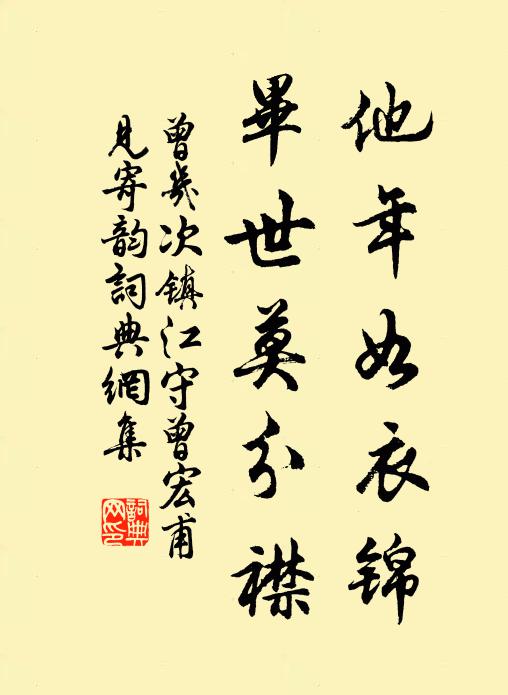 他年如衣錦
畢世莫分襟
曾幾次鎮江守曾宏甫
見寄韵詞典網集
詞典网印